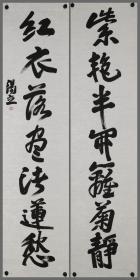 紫艳半开篱菊静
红衣落尽渚莲愁